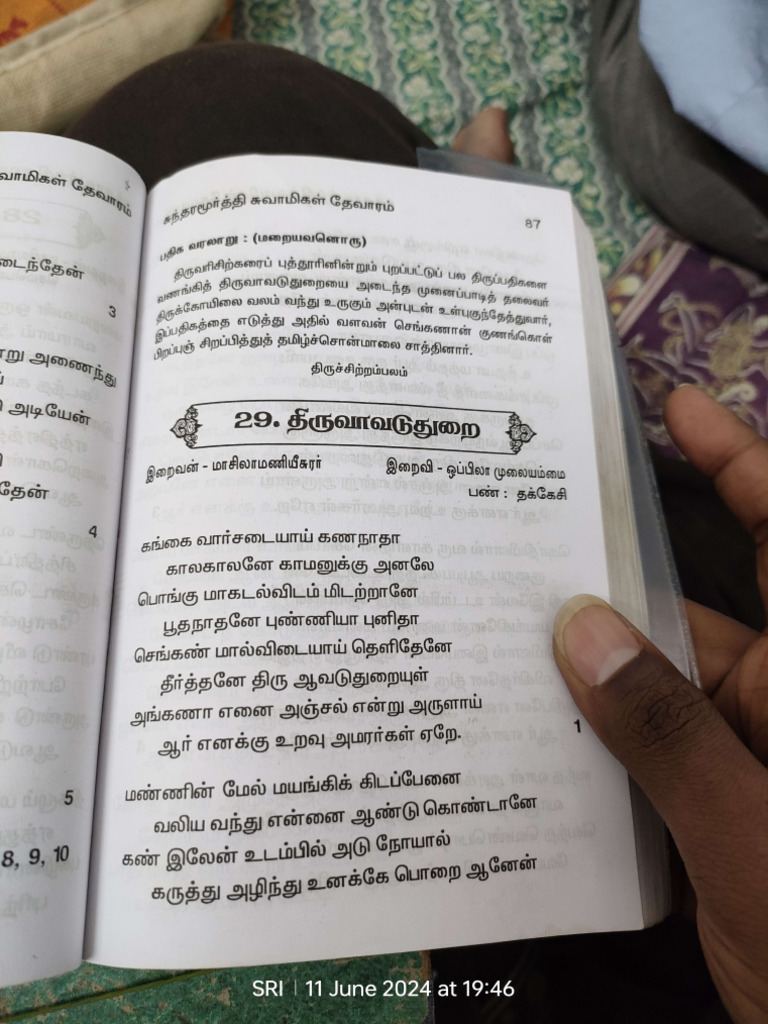 வாமிகள் தேவாரம்
டைந்தேன்
3
று அணைந்து
அடியேன்
தேன்
4
5
8, 9, 10
சுந்தரமூர்த்தி சுவாமிகள் தேவாரம்
87
பதிக வரலாறு : (மறையவனொரு)
திருவரிசிற்கரைப் புத்தூரினின்றும் புறப்பட்டுப் பல திருப்பதிகளை
வணங்கித் திருவாவடுதுறையை அடைந்த முனைப்பாடித் தலைவர்
திருக்கோயிலை வலம் வந்து உருகும் அன்புடன் உள்புகுந்தேத்துவார்,
இப்பதிகத்தை எடுத்து அதில் வளவன் செங்கணான் குணங்கொள்
பிறப்புஞ் சிறப்பித்துத் தமிழ்ச்சொன்மாலை சாத்தினார்.
திருச்சிற்றம்பலம்
29. திருவாவடுதுறை
இறைவன் - மாசிலாமணியீசுரர் இறைவி - ஒப்பிலா முலையம்மை
பண் : தக்கேசி
கங்கை வார்சடையாய் கணநாதா
காலகாலனே காமனுக்கு அனலே
பொங்கு மாகடல்விடம் மிடற்றானே
பூதநாதனே புண்ணியா புனிதா
செங்கண் மால்விடையாய் தெளிதேனே
தீர்த்தனே திரு ஆவடுதுறையுள்
அங்கணா எனை அஞ்சல் என்று அருளாய்
ஆர் எனக்கு உறவு அமரர்கள் ஏறே.
1
மண்ணின் மேல் மயங்கிக் கிடப்பேனை
வலிய வந்து என்னை ஆண்டு கொண்டானே
கண் இலேன் உடம்பில் அடு நோயால்
கருத்து அழிந்து உனக்கே பொறை ஆனேன்
SRI | 11 June 2024 at 19:46